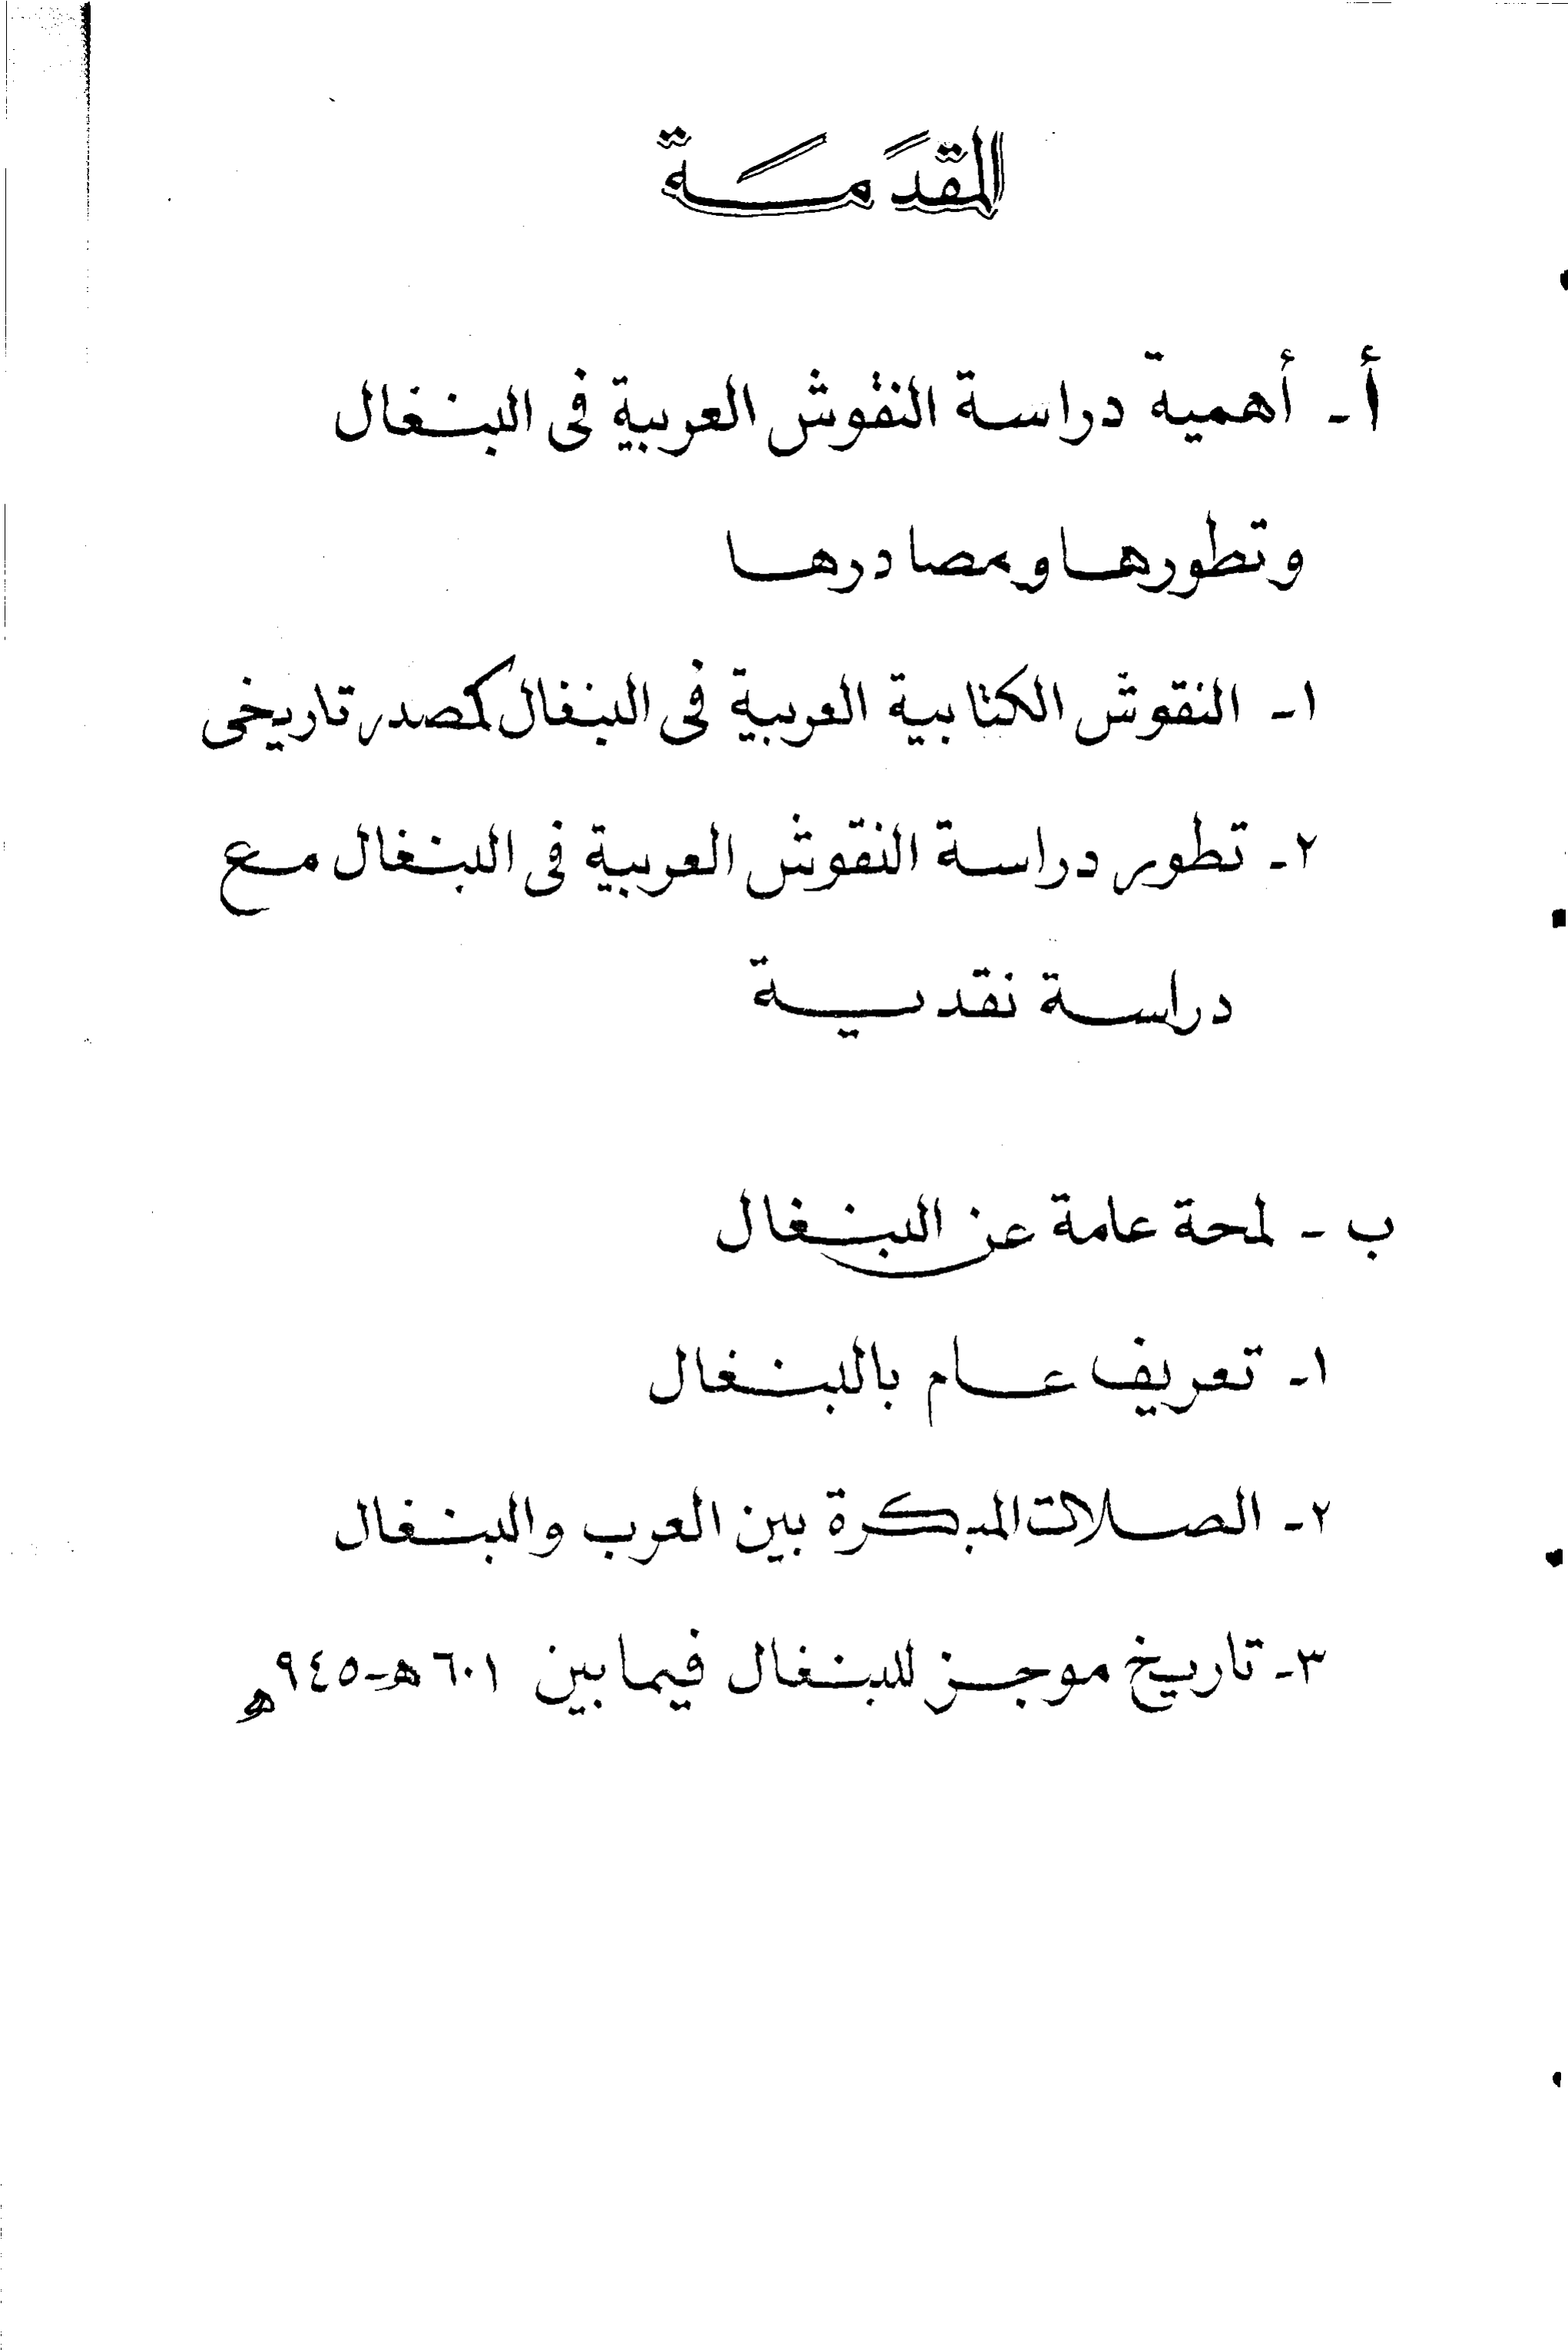 المقدَمَة
أ- أهمية دراسة النقوش العربية فى البنغال
وتطورها ومصادرها
١- النقوش الكتابية العربية فى البنغال كمصدر تاريخى
٢- تطور دراسة النقوش العربية فى البنغال مع
دراسة نقدية
ب - لمحة عامة عن البنغال
١- تعريف عام بالبنغال
٢- الصلات المبكرة بين العرب والبنغال
٣- تاريخ موجز للبنغال فيما بين ٦٠١هـ-٩٤٥هـ